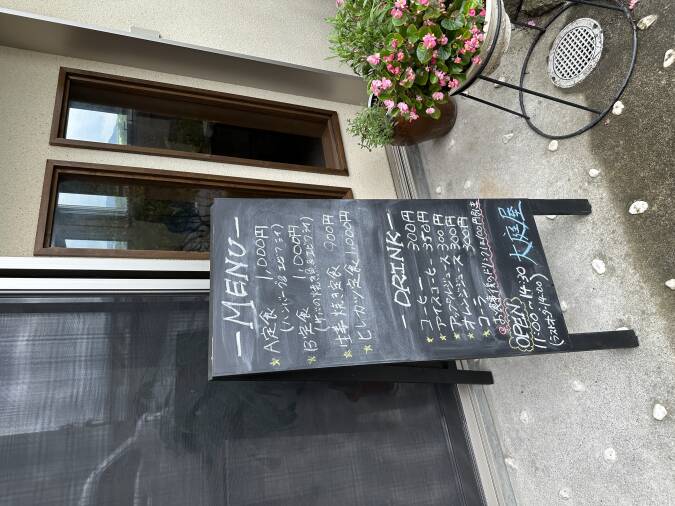 -MENU-
★A定食 1,000円
(ハンバーグ&エビフライ)
★B定食 1,000円
エビフライ)
★生姜焼き定食 900円
★ヒレカツ定食 1,000円
-DRINK-
★コーヒー 300円
★アイスコーヒー 350円
★アップルジュース 300円
★オレンジジュース 300円
★コーラ 300円
OPEN
11:00~14:30
(ラストオーダー14:00)
大庭屋